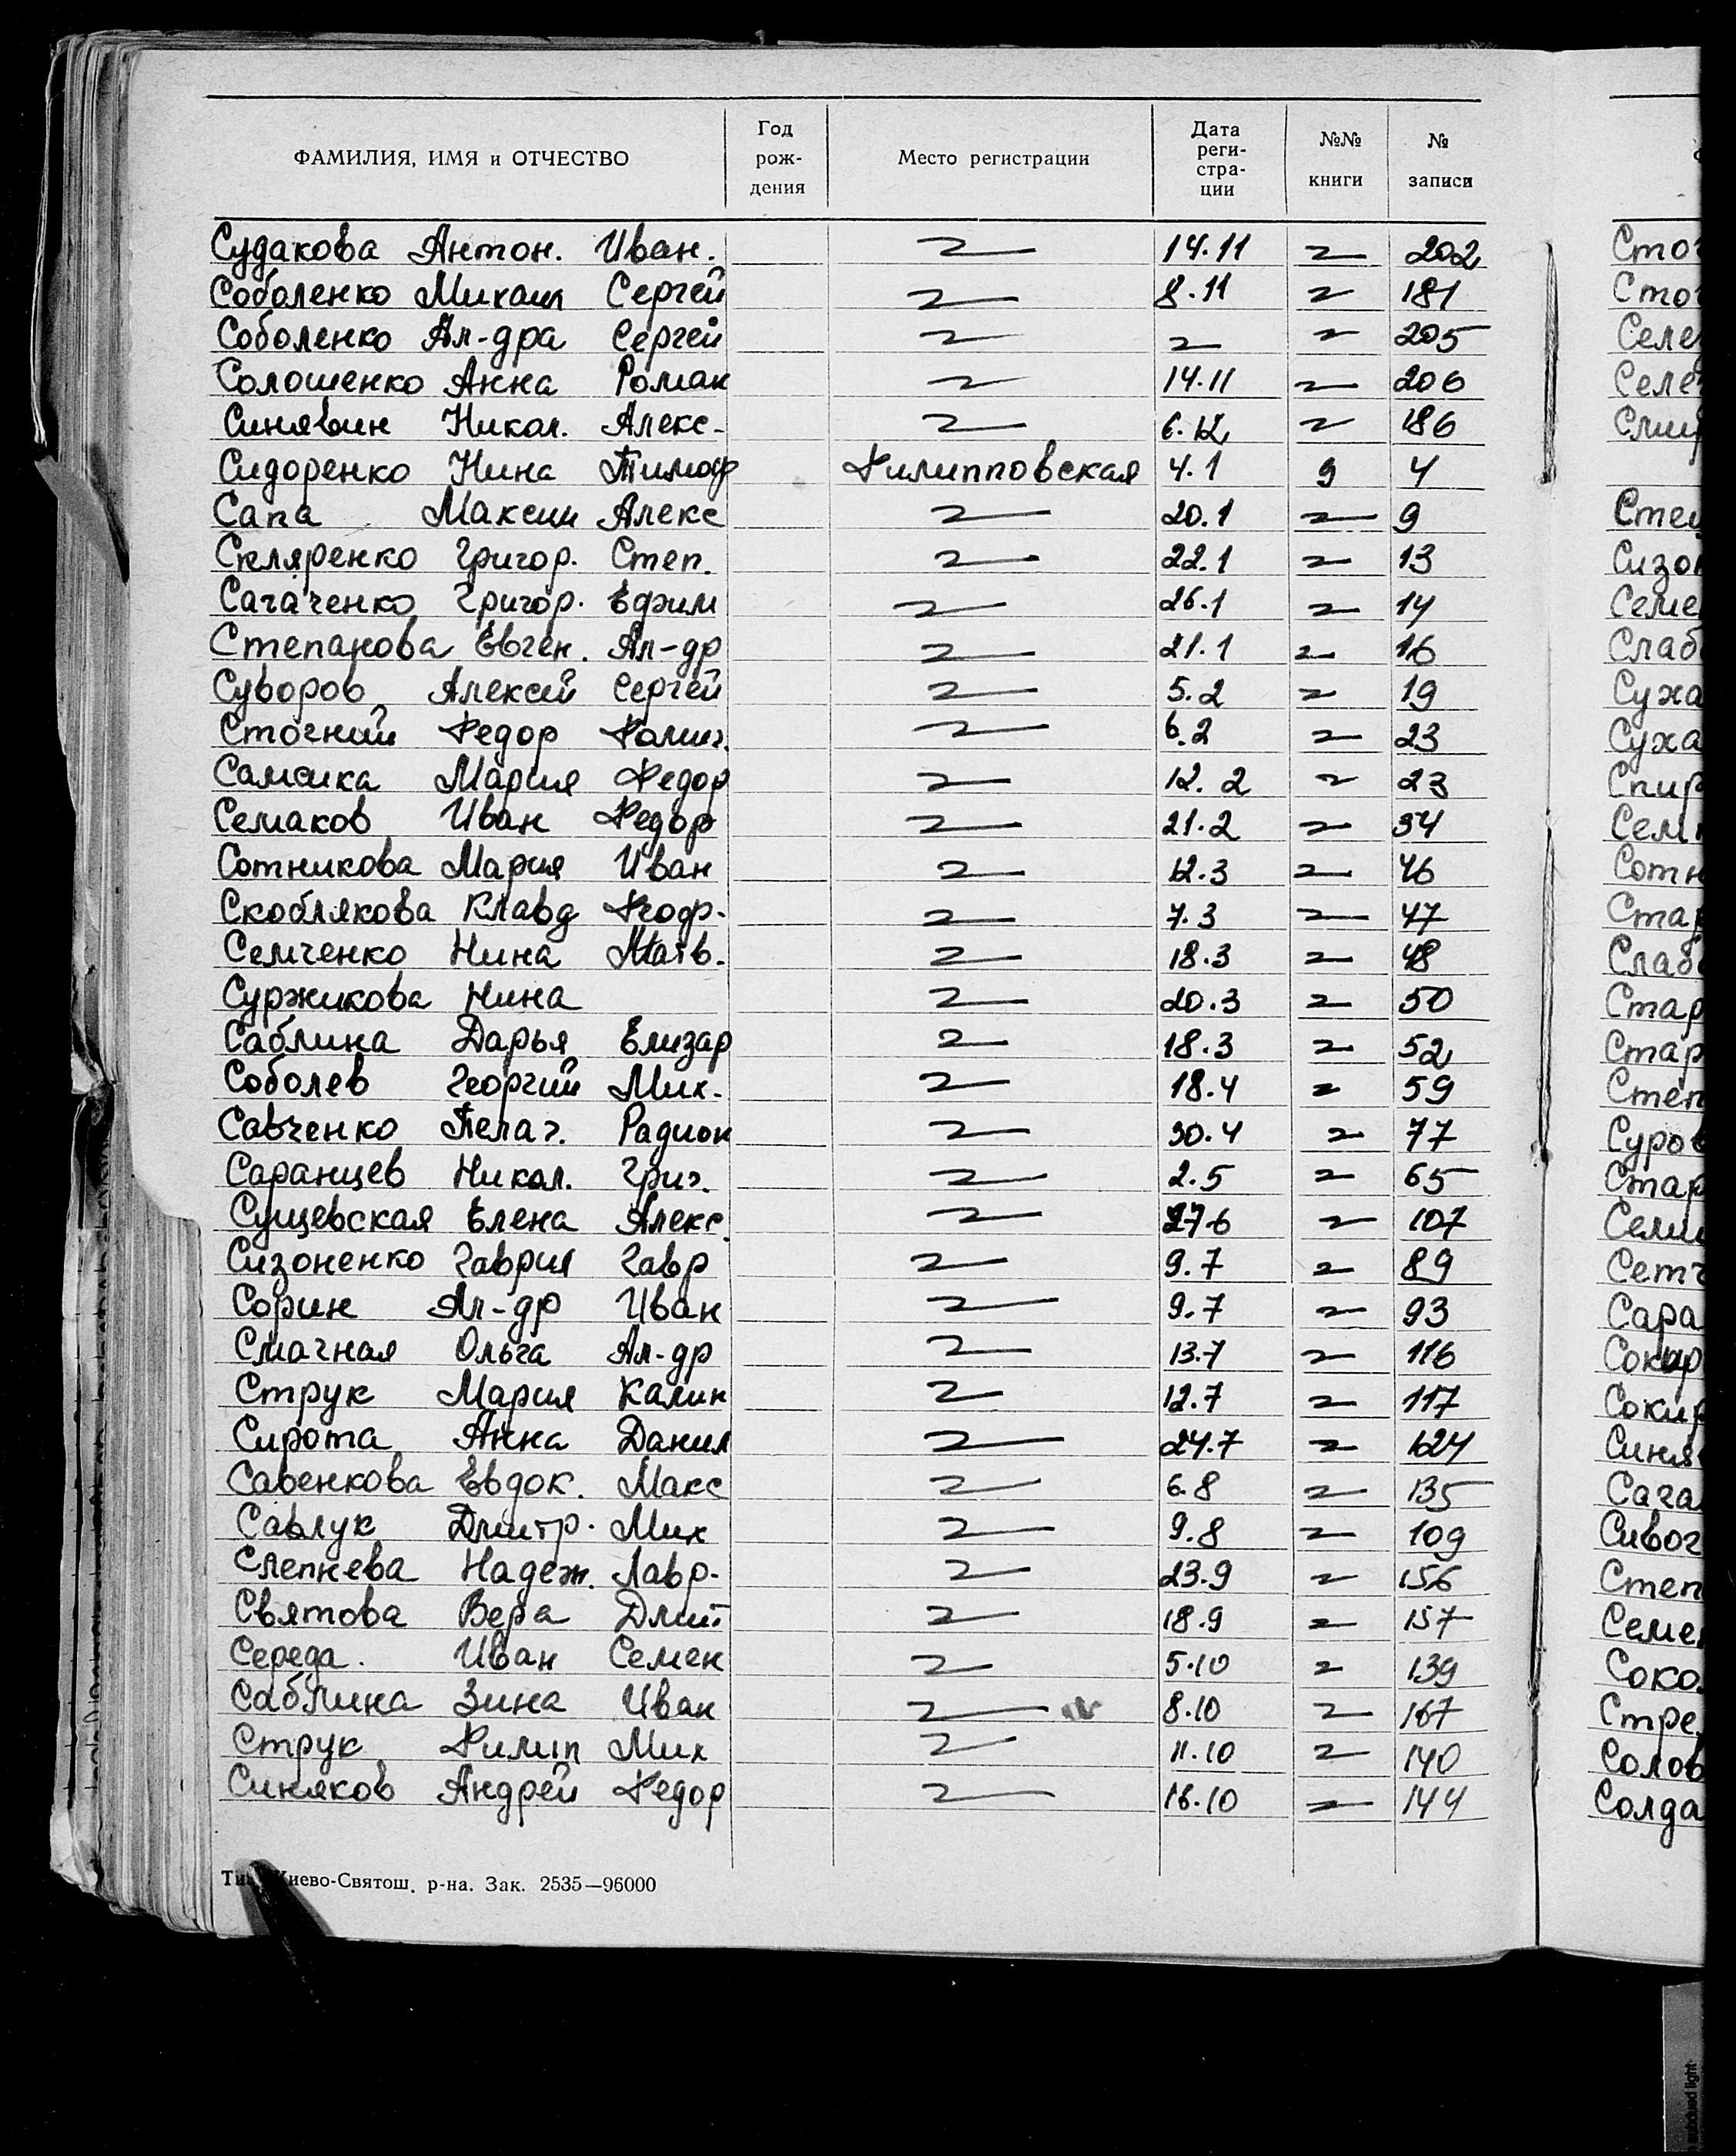 ФАМИЛИЯ, ИМЯ и ОТЧЕСТВО Год рождения Место регистрации Дата регистрации №№ книги № записи
Судакова Антон. Иван. 14.11 202
Соболенко Михаил Сергей 8.11 181
Соболенко Ал-дра Сергей 205
Солошенко Анна Роман 14.11 206
Синявин Никол. Алекс- 6.12 186
Сидоренко Нина Тимоф Филипповская 4.1 9 4
Сапа Максим Алекс 20.1 9
Скляренко Григор. Степ. 22.1 13
Сагаченко Григор. Ефим 26.1 14
Степанова Евген. Ал-др 21.1 16
Суворов Алексей Сергей 5.2 19
Сточний Федор 6.2 23
Мария Федор 12.2 23
Семаков Иван Федор 21.2 34
Сотникова Мария Иван 12.3 46
Скоблякова Клавд Феоф. 7.3 47
Семченко Нина Матв. 18.3 48
Суржикова Нина 20.3 50
Саблина Дарья Елизар 18.3 52
Соболев Георгий Мих. 18.4 59
Савченко Пелаг. Радион 30.4 77
Саранцев Никол. Григ. 2.5 65
Сущевская Елена Алекс. 27.6 107
Сизоненко Гаврил Гавр 9.7 89
Сорин Ал-др Иван 9.7 93
Смачная Ольга Ал-др 13.7 116
Струк Мария Калин 12.7 117
Сирота Анна Данил 24.7 124
Савенкова Евдок. Макс 6.8 135
Савлук Дмитр. Мих 9.8 109
Слепнева Надеж. Лавр. 23.9 156
Святова Вера Дмит 18.9 157
Середа. Иван Семен 5.10 139
Саблина Зина Иван 8.10 167
Струк Филип Мих 11.10 140
Синяков Андрей Федор 16.10 144
Киево-Святош. р-на. Зак. 2535—96000